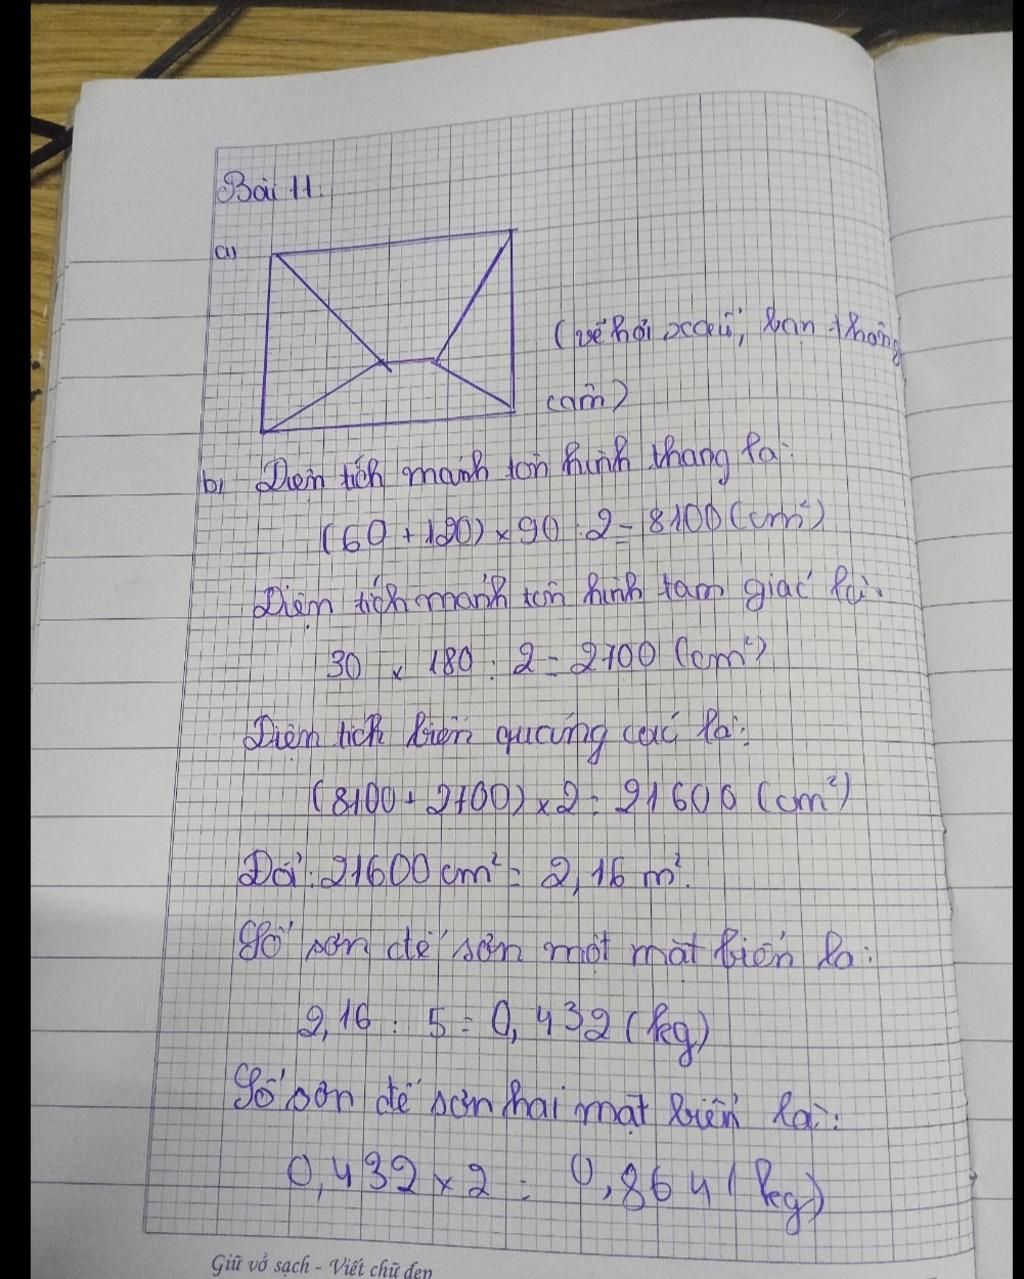 Bài 11.
a)
(vẽ hơi xấu, bạn thông
cảm)
b) Diện tích mảnh tôn hình thang là:
(60 + 120) × 90 : 2 = 8100 (cm²)
Diện tích mảnh tôn hình tam giác là:
30 × 180 : 2 = 2700 (cm²)
Diện tích biển quảng cáo là:
(8100 + 2700) × 2 = 21600 (cm²)
Đổi: 21600 cm² = 2,16 m².
Số sơn để sơn một mặt biển là:
2,16 : 5 = 0,432 (kg)
Số sơn để sơn hai mặt biển là:
0,432 × 2 = 0,864 (kg)
Giữ vở sạch - Viết chữ đẹp